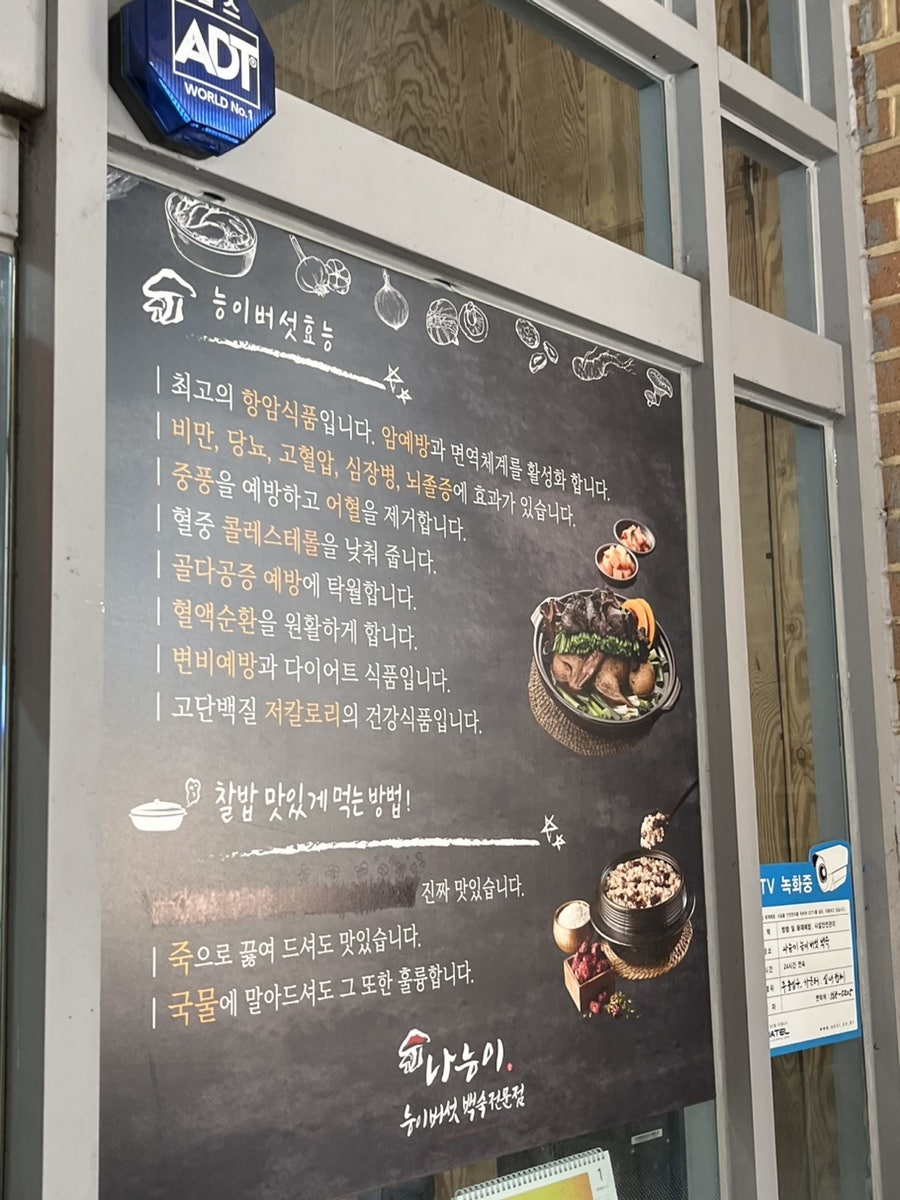 ADT
WORLD No.1
능이버섯효능
최고의 항암식품입니다. 암예방과 면역체계를 활성화 합니다.
비만, 당뇨, 고혈압, 심장병, 뇌졸증에 효과가 있습니다.
중풍을 예방하고 어혈을 제거합니다.
혈중 콜레스테롤을 낮춰 줍니다.
골다공증 예방에 탁월합니다.
혈액순환을 원활하게 합니다.
변비예방과 다이어트 식품입니다.
고단백질 저칼로리의 건강식품입니다.
찰밥 맛있게 먹는 방법!
진짜 맛있습니다.
죽으로 끓여 드셔도 맛있습니다.
국물에 말아드셔도 그 또한 훌륭합니다.
나능이.
능이버섯 백숙전문점
TV 녹화중
24시간 연속
1